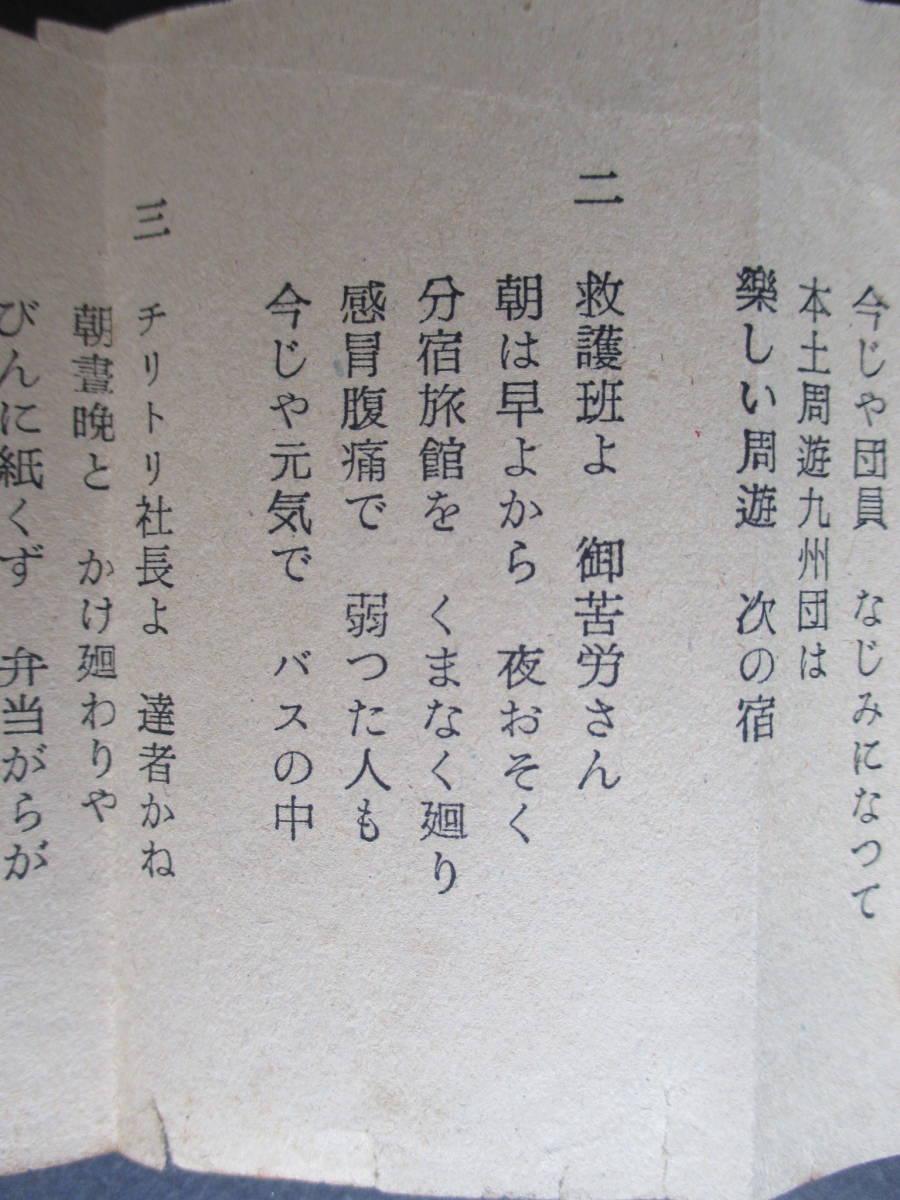 今じや団員　なじみになつて
本土周遊九州団は
樂しい周遊　次の宿
二　救護班よ　御苦労さん
朝は早よから　夜おそく
分宿旅館を　くまなく廻り
感冒腹痛で　弱つた人も
今じや元気で　バスの中
三　チリトリ社長よ　達者かね
朝晝晩と　かけ廻わりや
びんに紙くず　弁当がらが